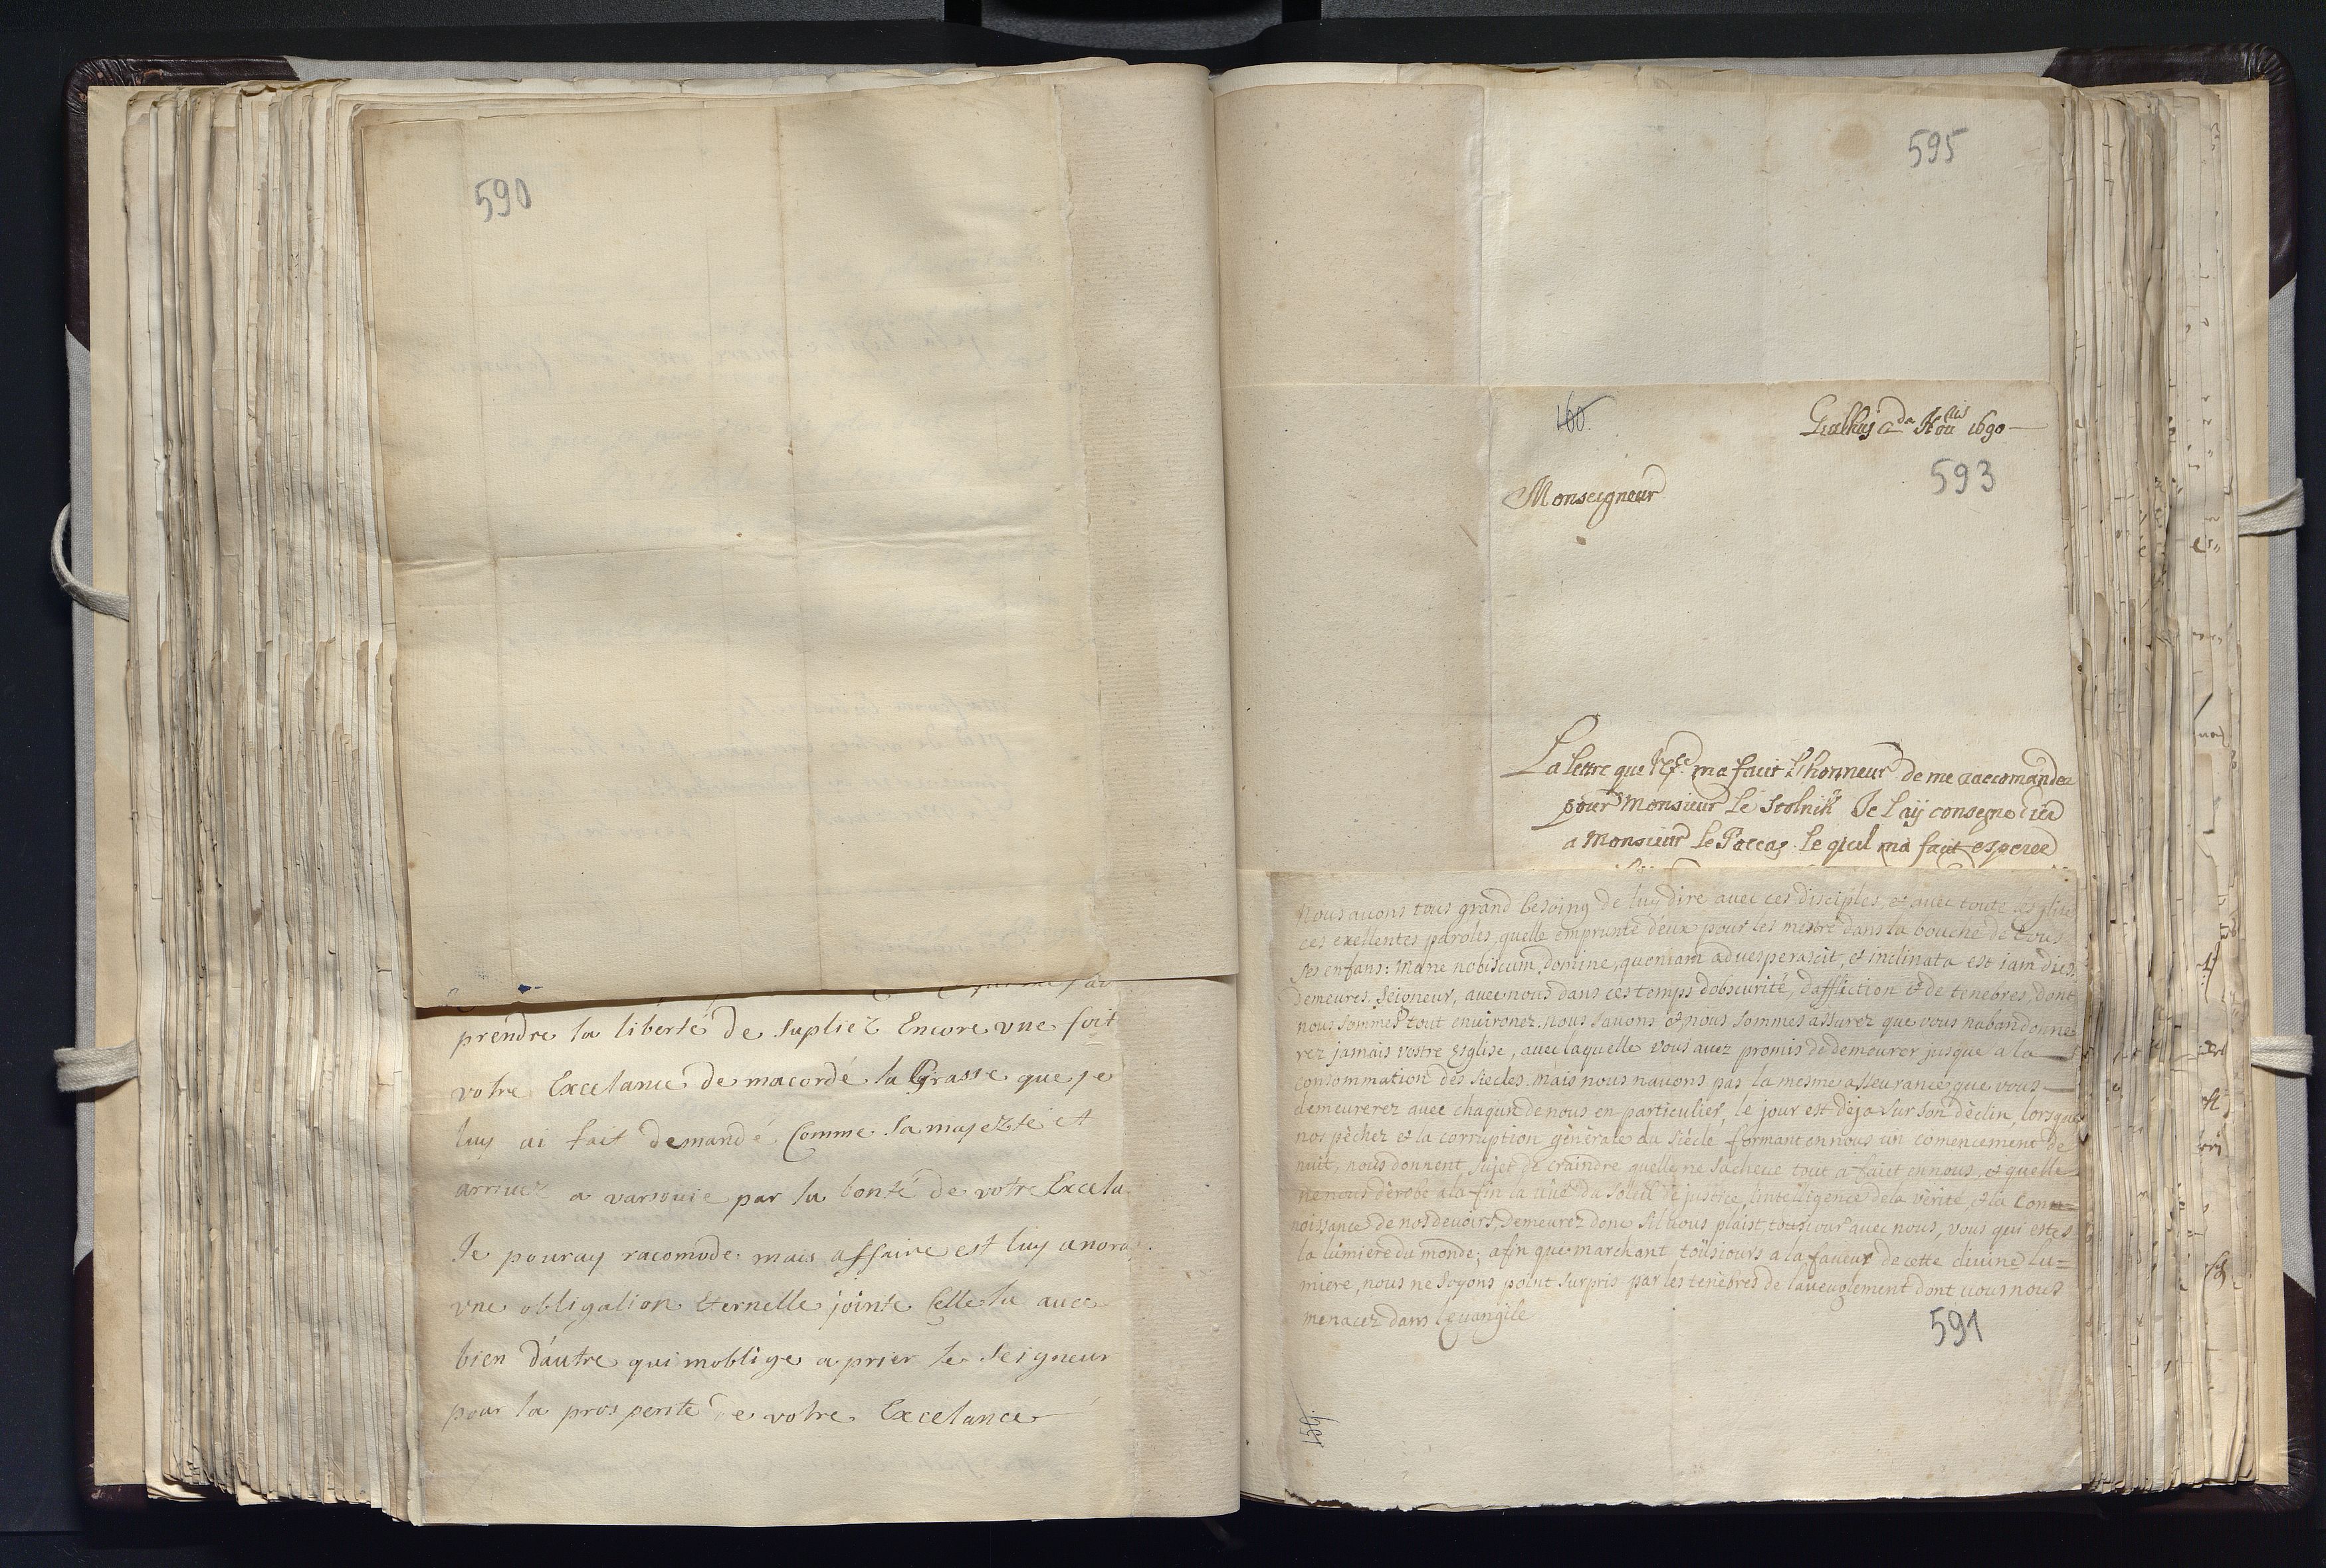 590
prendre la liberté de supliez Encore une foit
votre Excelance de macordé la Grasse que je
luy ai fait demandé Comme sa majezté et
arrivez a varsovie par la bonté de votre Excela
Je pouray racomode mais affaire est luy anoray
vne obligation Eternelle jointe Celle la avec
bien d'autre qui moblige a prier le Seigneur
pour la prosperite de votre Excelance
595
160
1690
593
Monseigneur
La lettre que ma fait L'honneur de me raccomander
pour Monsieur Le Stolnik Je l'aÿ consegne
a Monsieur Le le quel ma fait esperer
Nous avons tous grand besoing de luy dire avec ces disciples, et avec toute
ces exellentes paroles, quelle emprunte d'eux pour les mettre dans la bouche de tous
ses enfans: Mane nobiscum, domine, quoniam advesperascit, et inclinata est iam dies.
demeures, Seigneur, avec nous dans ces temps dobscurité, daffliction et de tenebres, dont
nous sommes tout environez. nous savons et nous sommes assurez que vous nabandonne
rez jamais vostre Esglise, avec laquelle vous avez promis de demeurer jusque a la
consommation des siecles. mais nous navons pas la mesme asseurance que vous
demeurerez avec chaqun de nous en particulier, le jour est déja sur son déclin, lorsque
nos péchez et la corruption générale du siécle formant en nous un comencement de
nuit, nous donnent sujet de craindre quelle ne sacheve tout a faict en nous, et quelle
ne nous dérobe a la fin la vüe du soleil de justice, lintelligence de la vérité, et la Conn=
noissance de nos devoirs, Demeurez donc s'il vous plaist, tousiour avec nous, vous qui estes
la lumiere du monde; afin que marchant toüsiours a la faveur de cette divine lu=
miere, nous ne soyons point surpris par les tenèbres de laveuglement dont vous nous
menacez dans levangile
591